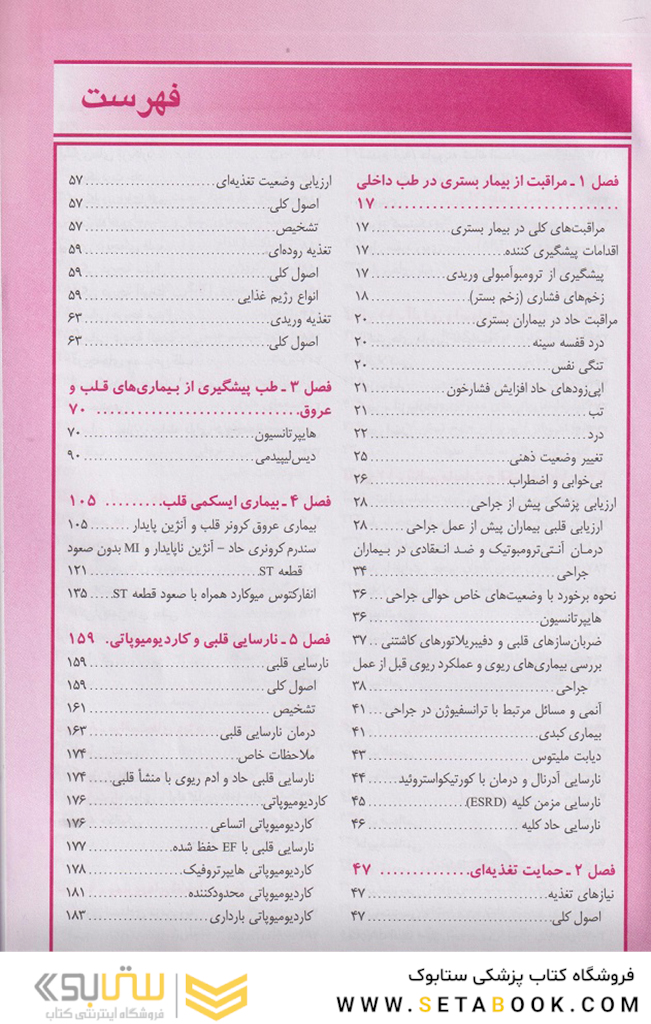 فهرست
فصل ۱ ـ مراقبت از بیمار بستری در طب داخلی
................................ ۱۷
مراقبت‌های کلی در بیمار بستری ................ ۱۷
اقدامات پیشگیری کننده ................ ۱۷
پیشگیری از ترومبوآمبولی وریدی ................ ۱۷
زخم‌های فشاری (زخم بستر) ................ ۱۸
مراقبت حاد در بیماران بستری ................ ۲۰
درد قفسه سینه ................ ۲۰
تنگی نفس ................ ۲۰
اپی‌زودهای حاد افزایش فشارخون ................ ۲۱
تب ................ ۲۱
درد ................ ۲۲
تغییر وضعیت ذهنی ................ ۲۵
بی‌خوابی و اضطراب ................ ۲۶
ارزیابی پزشکی پیش از جراحی ................ ۲۸
ارزیابی قلبی بیماران پیش از عمل جراحی ..... ۲۸
درمان آنتی‌ترومبوتیک و ضد انعقادی در بیماران
جراحی ................ ۳۴
نحوه برخورد با وضعیت‌های خاص حوالی جراحی ... ۳۶
هایپرتانسیون ................ ۳۶
ضربان‌سازهای قلبی و دفیبریلاتورهای کاشتنی .. ۳۷
بررسی بیماری‌های ریوی و عملکرد ریوی قبل از عمل
جراحی ................ ۳۸
آنمی و مسائل مرتبط با ترانسفیوژن در جراحی ... ۴۱
بیماری کبدی ................ ۴۱
دیابت ملیتوس ................ ۴۳
نارسایی آدرنال و درمان با کورتیکواستروئید ...... ۴۴
نارسایی مزمن کلیه (ESRD) ................ ۴۵
نارسایی حاد کلیه ................ ۴۶
فصل ۲ ـ حمایت تغذیه‌ای ................ ۴۷
نیازهای تغذیه ................ ۴۷
اصول کلی ................ ۴۷
ارزیابی وضعیت تغذیه‌ای ................ ۵۷
اصول کلی ................ ۵۷
تشخیص ................ ۵۷
تغذیه روده‌ای ................ ۵۹
اصول کلی ................ ۵۹
انواع رژیم غذایی ................ ۵۹
تغذیه وریدی ................ ۶۳
اصول کلی ................ ۶۳
فصل ۳ ـ طب پیشگیری از بیماری‌های قلب و
عروق ................ ۷۰
هایپرتانسیون ................ ۷۰
دیس‌لیپیدمی ................ ۹۰
فصل ۴ ـ بیماری ایسکمی قلب ................ ۱۰۵
بیماری عروق کرونر قلب و آنژین پایدار ........ ۱۰۵
سندرم کرونری حاد – آنژین ناپایدار و MI بدون صعود
قطعه ST ................ ۱۲۱
انفارکتوس میوکارد همراه با صعود قطعه ST ..... ۱۳۵
فصل ۵ ـ نارسایی قلبی و کاردیومیوپاتی . ۱۵۹
نارسایی قلبی ................ ۱۵۹
اصول کلی ................ ۱۵۹
تشخیص ................ ۱۶۱
درمان نارسایی قلبی ................ ۱۶۳
ملاحظات خاص ................ ۱۷۴
نارسایی قلبی حاد و ادم ریوی با منشأ قلبی ..... ۱۷۴
کاردیومیوپاتی ................ ۱۷۶
کاردیومیوپاتی اتساعی ................ ۱۷۶
نارسایی قلبی با EF حفظ شده ................ ۱۷۷
کاردیومیوپاتی هایپرتروفیک ................ ۱۷۸
کاردیومیوپاتی محدودکننده ................ ۱۸۱
کاردیومیوپاتی بارداری ................ ۱۸۳
فروشگاه کتاب پزشکی ستابوک
WWW.SETABOOK.COM
ستابوک
فروشگاه اینترنتی کتاب